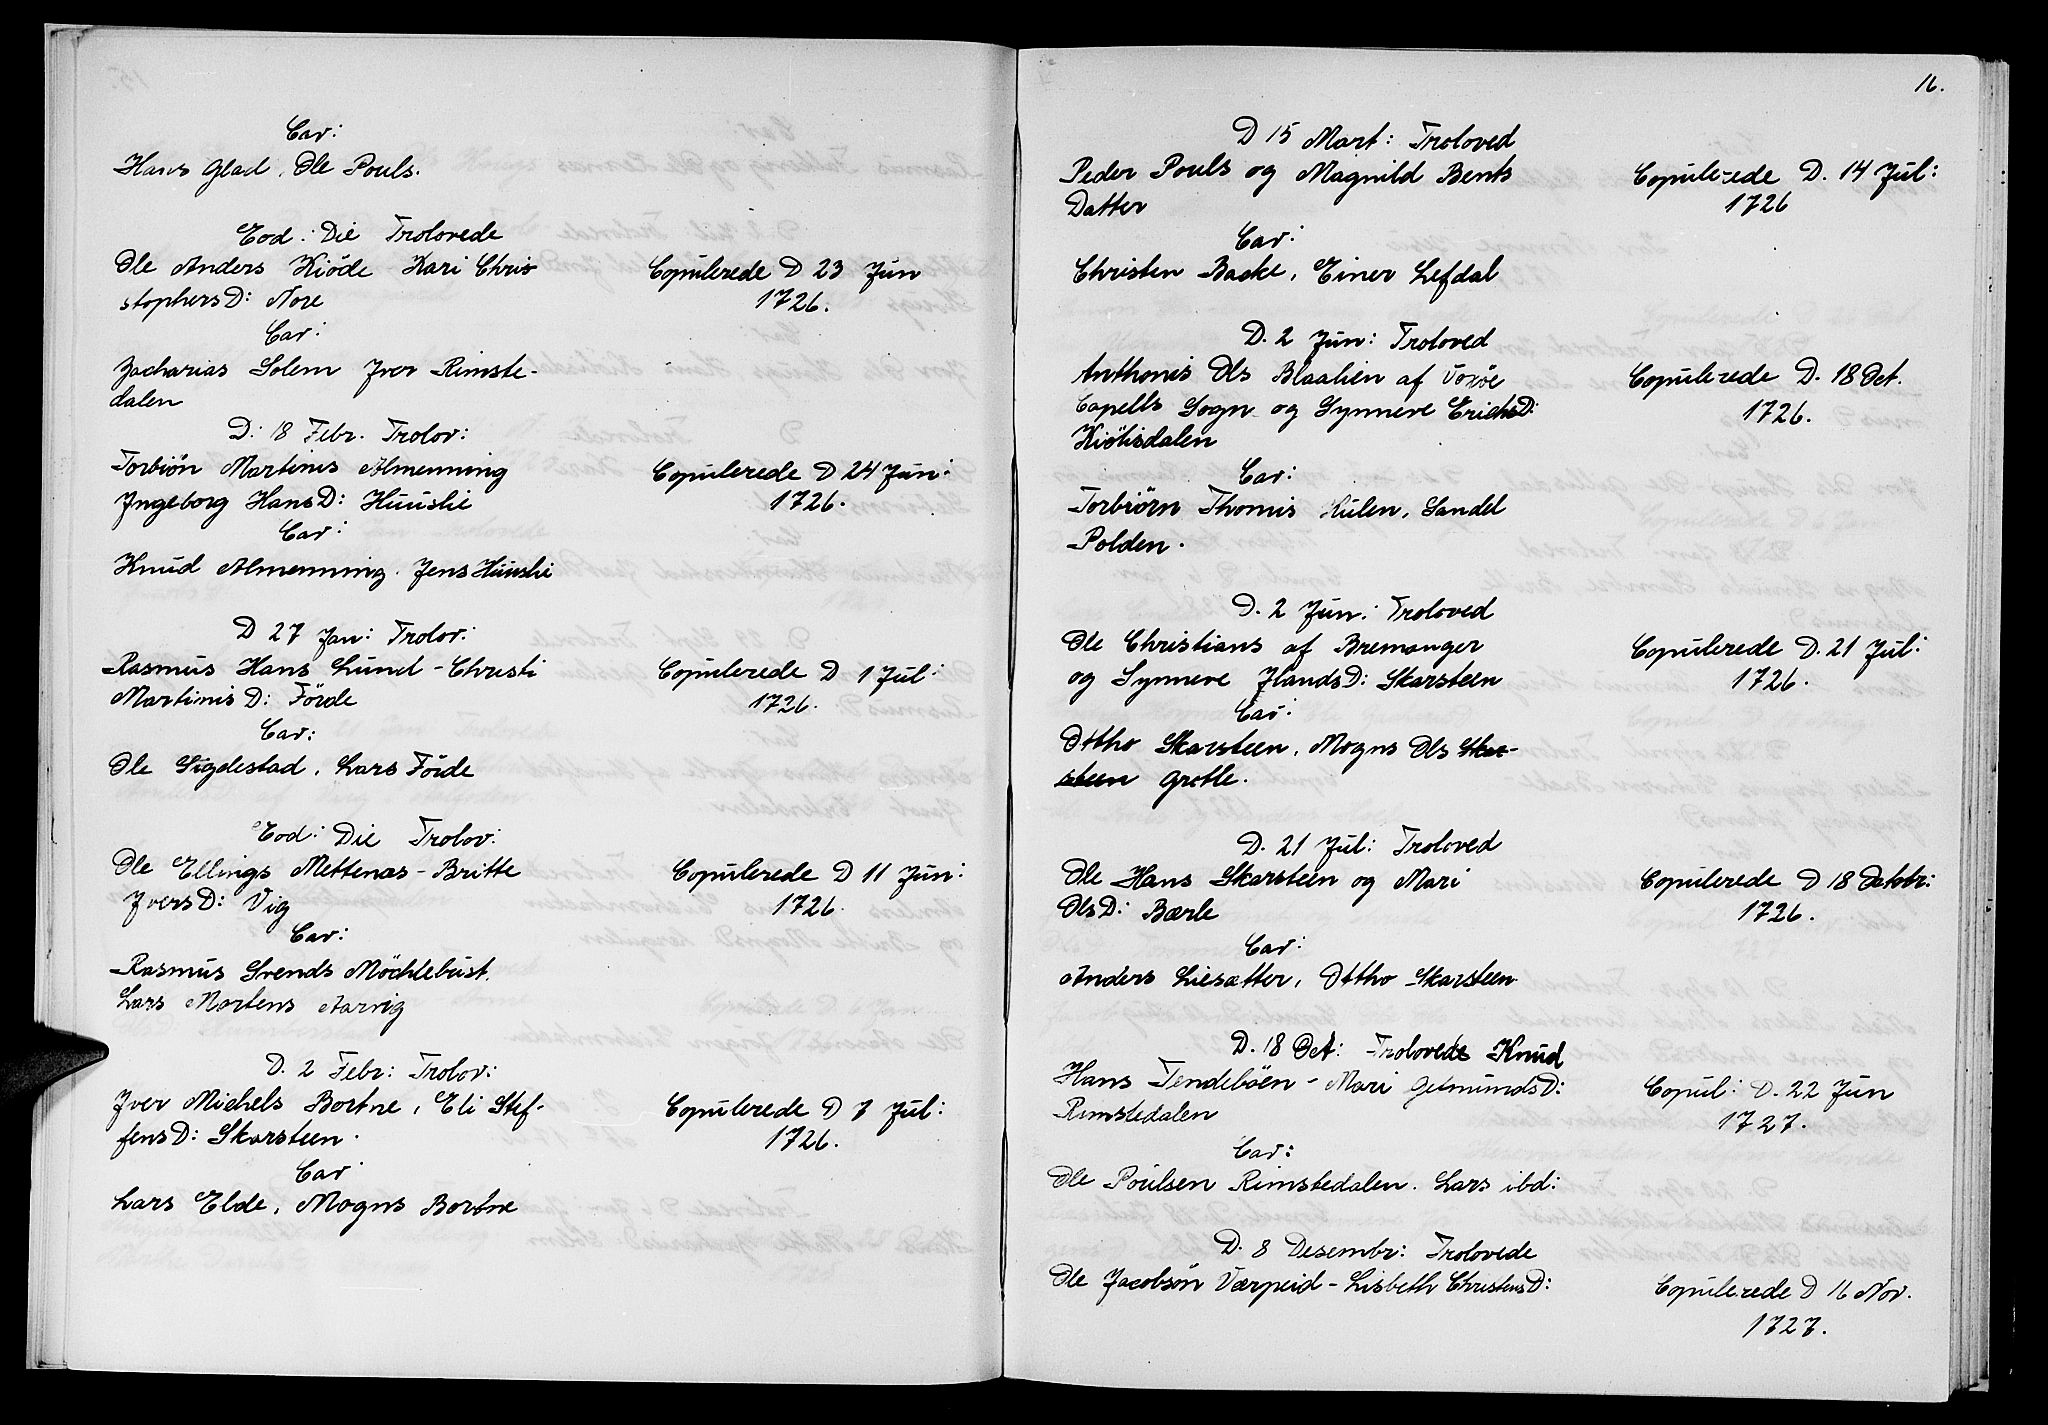 Cav:
Hans Glad, Ole Pouls.
Eod: Die Trolovede
Ole Anders Kiöde Kari Chris
stophersD: Nore
Copulerede D 23 Jun
1726.
Cav:
Zacharias Solem Jver Rimste-
dalen
D: 18 Febr. Trolov:
Torbiön Martinus Almenning
Ingeborg HansD: Huuslie
Copulerede D 24 Jun:
1726.
Cav:
Knud Almenning. Jens Huuslie
D 27 Jan: Trolov:
Rasmus Hans Lund - Christi
MartinisD: Förde
Copulerede D 1 Jul:
1726.
Cav:
Ole Sigdestad, Lars Förde
Eod: Die Trolov:
Ole Ellings Mettenæs - Britte
JversD: Vig
Copulerede D 11 Jun:
1726.
Cav:
Rasmus Svends Möchlebust.
Lars Mortens Aarvig
D. 2 Febr: Trolov:
Jver Michels Bortne, Eli Stef-
fensD: Skarsteen.
Copulerede D 7 Jul:
1726.
Cav
Lars Elde, Mogns Bortne
16.
D 15 Mart: Troloved
Peder Pouls og Magnild Bents
Datter
Copulerede D. 14 Jul:
1726
Cav:
Christen Backe, Einer Lefdal
D. 2 Jun: Troloved
Anthonis Ols Blaalien af
Capells Sogn og Synneve ErichsD:
Kiölisdalen
Copulerede D. 18 Oct.
1726.
Cav:
Torbiörn Thomis Hulen, Sandel
Polden.
D. 2 Jun: Troloved
Ole Christians af Bremanger
og Synneve JlandsD: Skarsteen
Copulerede D. 21 Jul:
1726.
Cav:
Ottho Skarsteen, Mogns Ols Skar-
steen Grotle.
D. 21 Jul: Troloved
Ole Hans Skarsteen og Mari
OlsD: Bærle
Copulerede D 18 Octobr:
1726.
Cav:
Anders Liesætter, Ottho Skarsteen
D. 18 Oct: Trolovede Knud
Hans Tendebøen - Mari GetmundsD:
Rimstedalen
Copul: D. 22 Jun
1727.
Cav:
Ole Poulsen Rimstedalen. Lars ibd:
D. 8 Desembr: Trolovede
Ole Jacobsøn Værpeid - Lisbeth ChristensD:
Copulerede D 16 Nov.
1727.